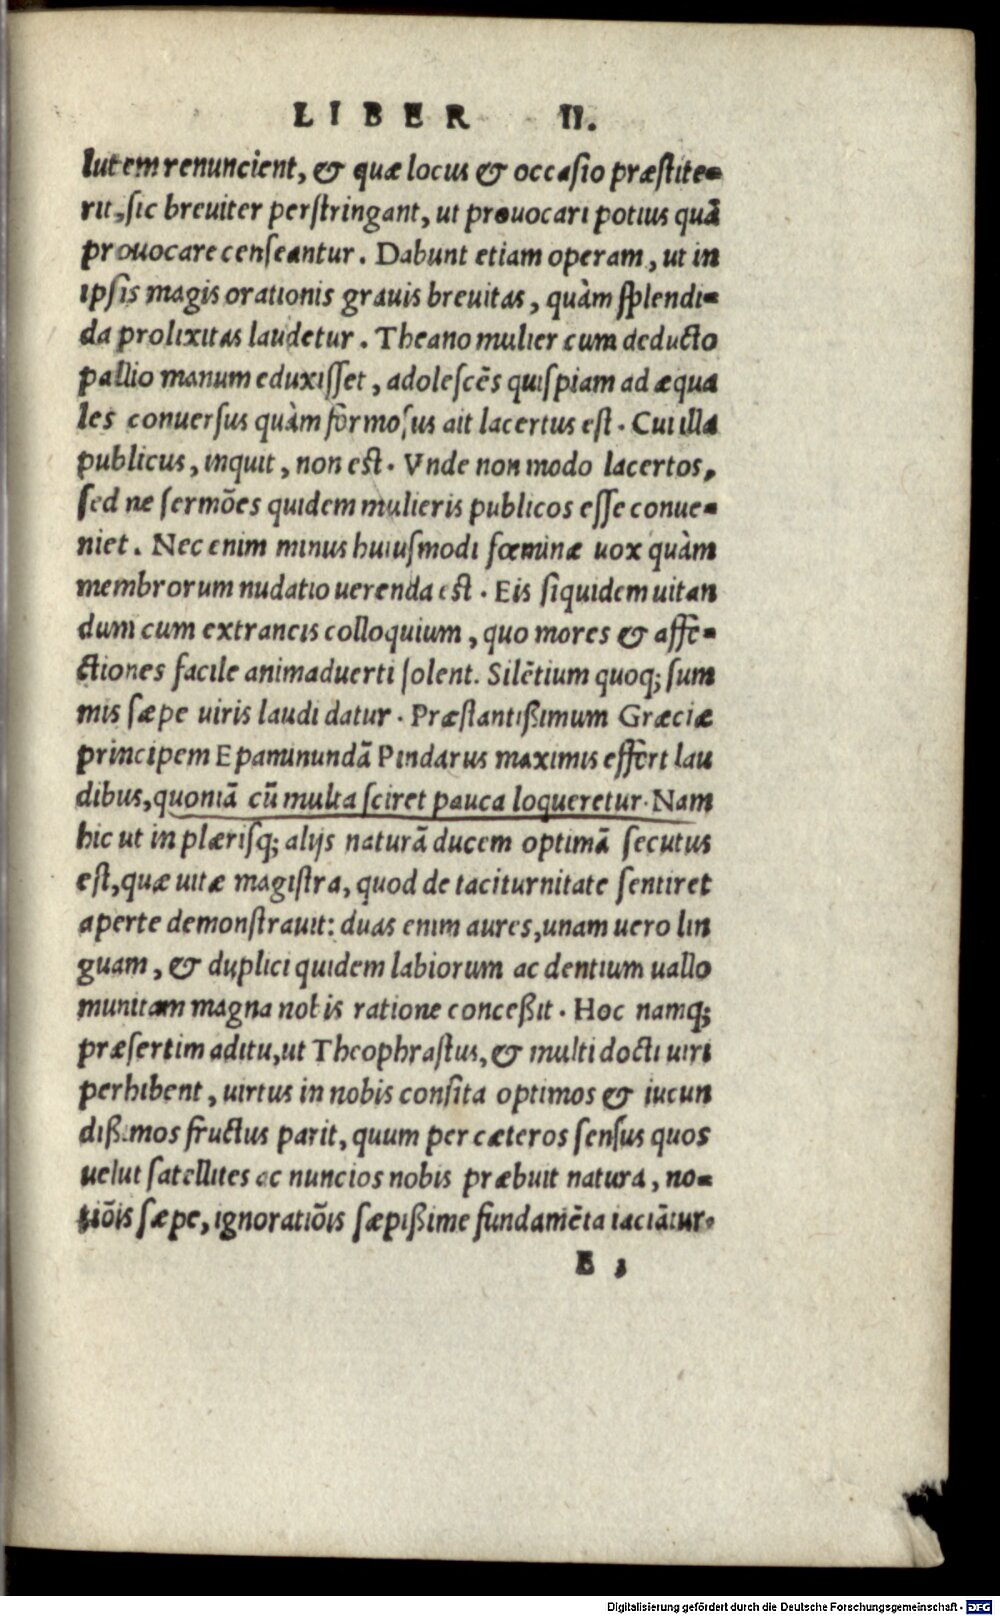 LIBER II.
lutem renuncient, & quæ locus & occasio præstite=
rit, sic breuiter perstringant, ut prouocari potius quã
prouocare censeantur. Dabunt etiam operam, ut in
ipsis magis orationis grauis breuitas, quàm splendi=
da prolixitas laudetur. Theano mulier cum deducto
pallio manum eduxisset, adolescẽs quispiam ad æqua
les conuersus quàm formosus ait lacertus est. Cui illa
publicus, inquit, non est. Vnde non modo lacertos,
sed ne sermões quidem mulieris publicos esse conue=
niet. Nec enim minus huiusmodi fœminæ uox quàm
membrorum nudatio uerenda est. Eis siquidem uitan
dum cum extraneis colloquium, quo mores & affe=
ctiones facile animaduerti solent. Silẽtium quoq; sum
mis sæpe uiris laudi datur. Præstantißimum Græciæ
principem Epaminundã Pindarus maximis effert lau
dibus, quoniã cũ multa sciret pauca loqueretur. Nam
hic ut in plærisq; alijs naturã ducem optimã secutus
est, quæ uitæ magistra, quod de taciturnitate sentiret
aperte demonstrauit: duas enim aures, unam uero lin
guam, & duplici quidem labiorum ac dentium uallo
munitam magna nobis ratione conceßit. Hoc namq;
præsertim aditu, ut Theophrastus, & multi docti uiri
perhibent, uirtus in nobis consita optimos & iucun
dißimos fructus parit, quum per cæteros sensus quos
uelut satellites ac nuncios nobis præbuit natura, no=
tiõis sæpe, ignoratiõis sæpißime fundamẽta iaciãtur.
E 3
Digitalisierung gefördert durch die Deutsche Forschungsgemeinschaft - DFG